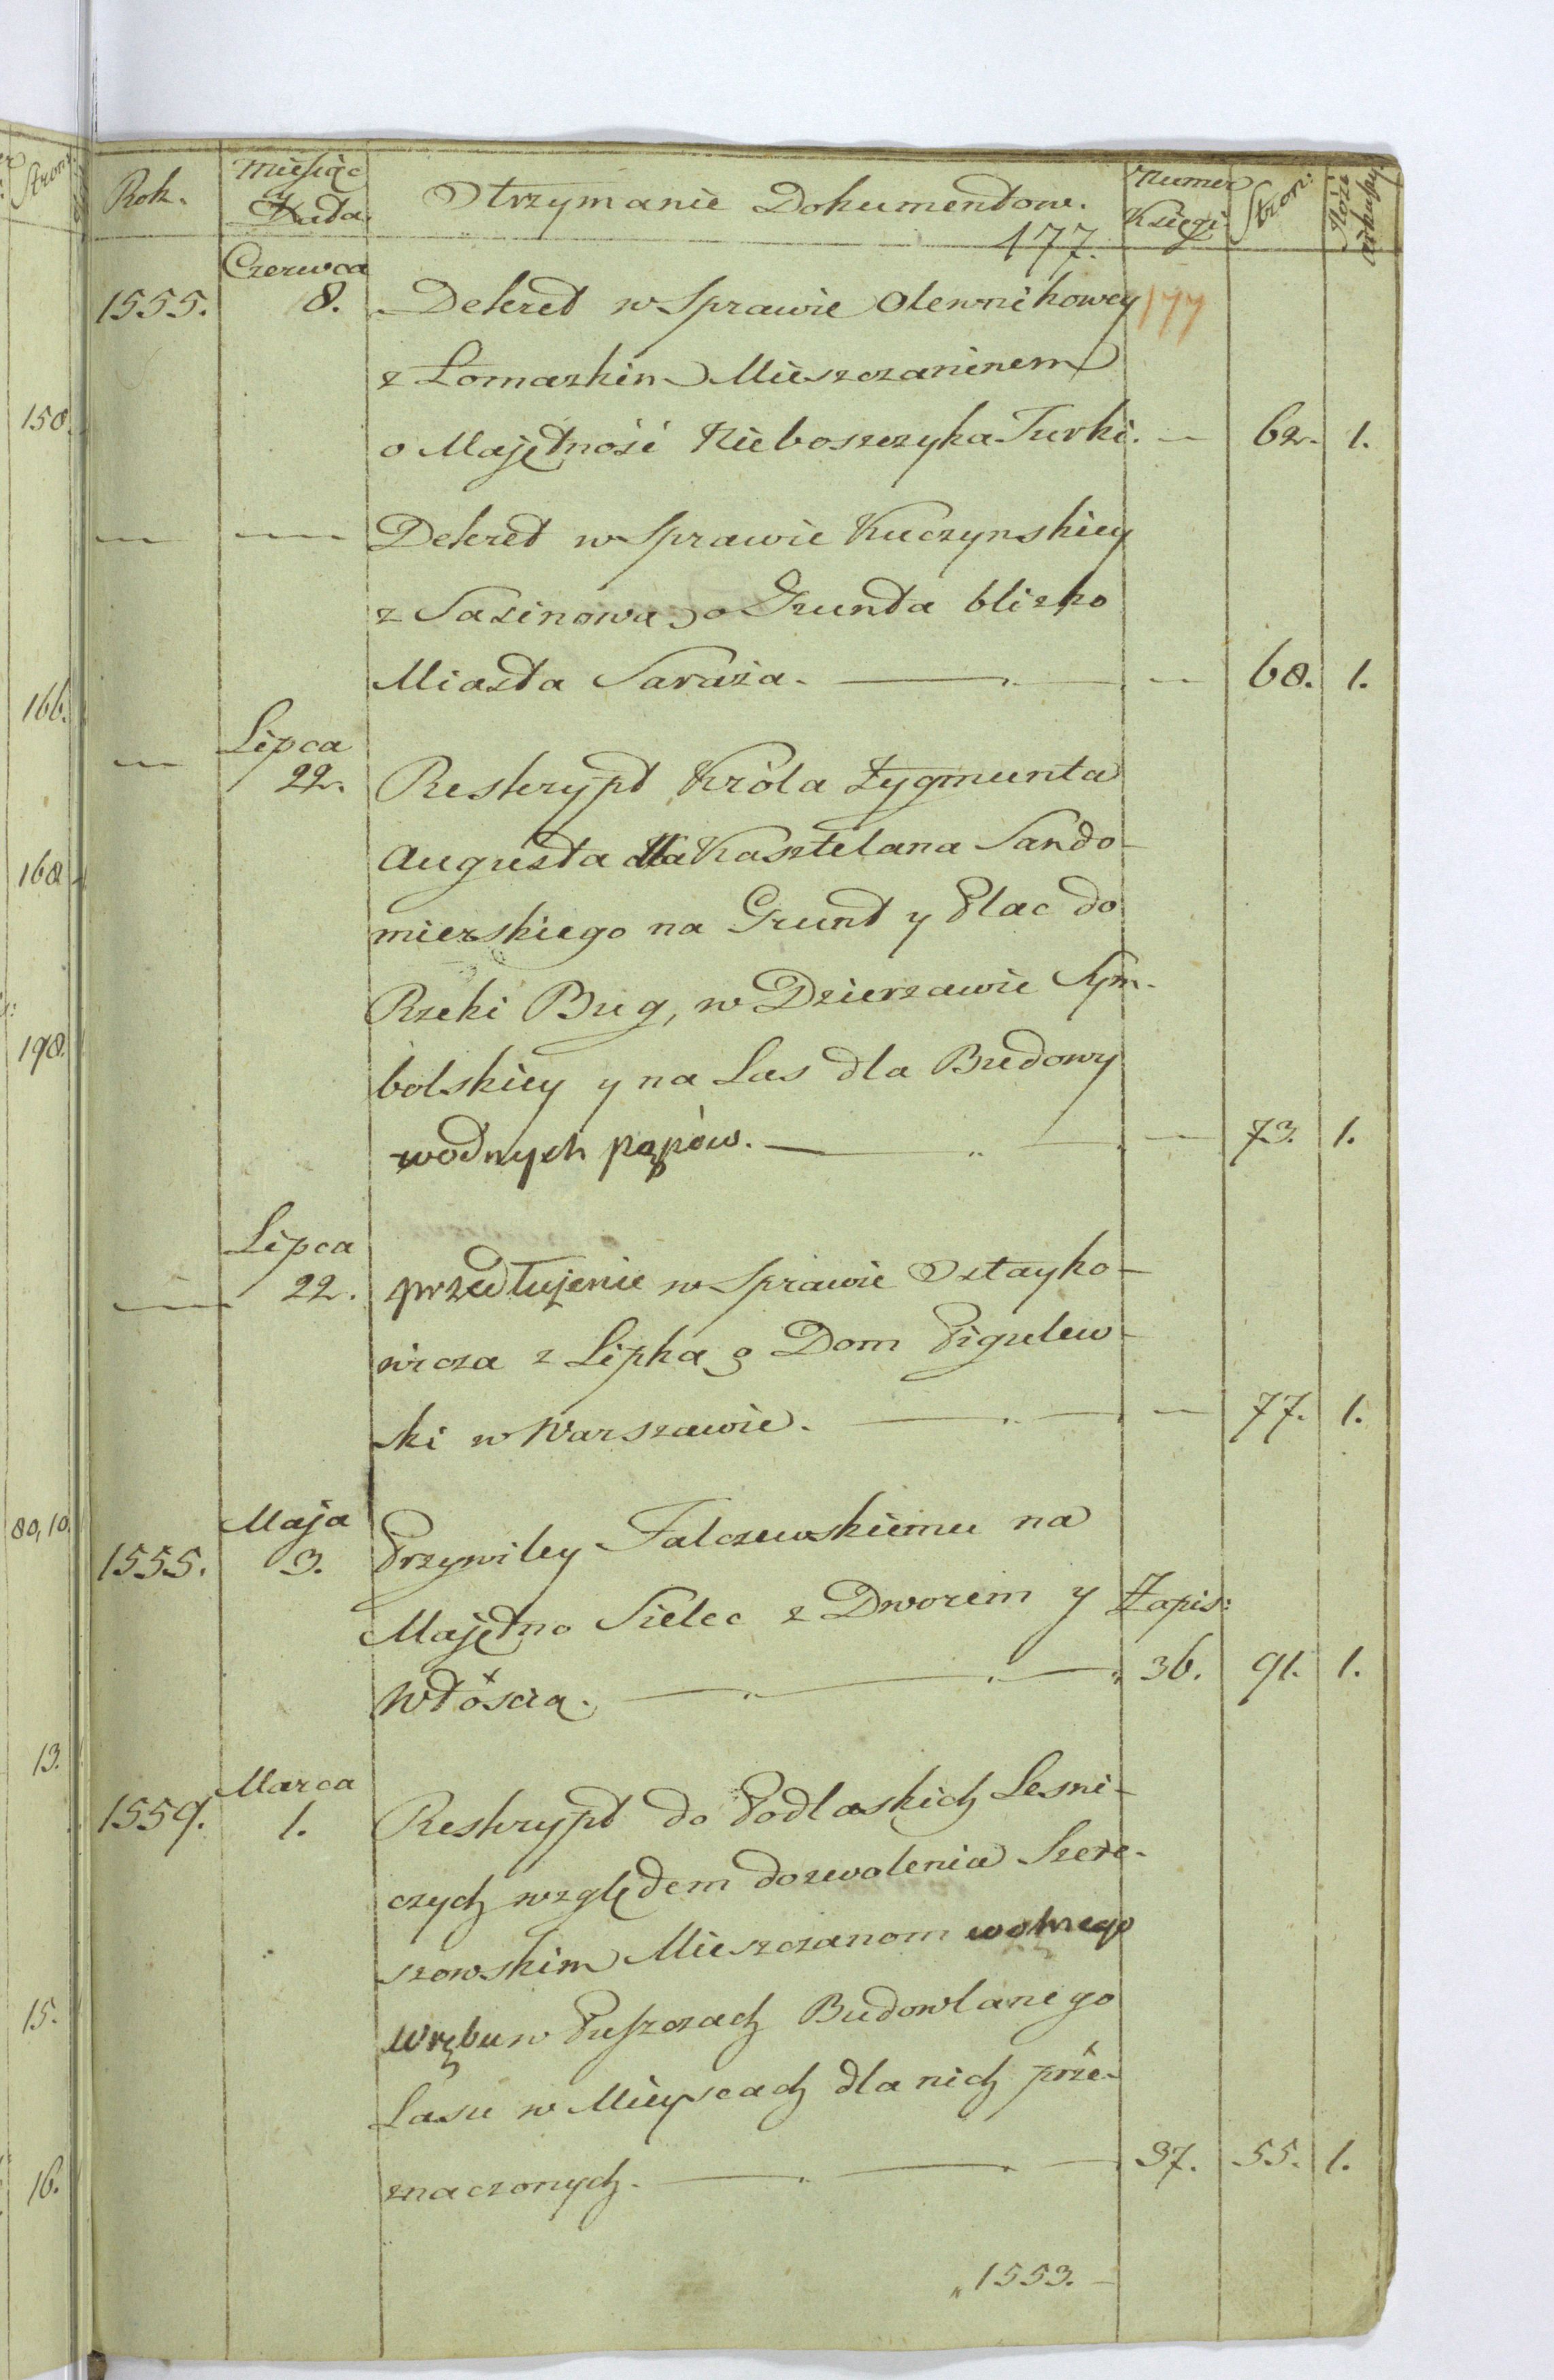 Rok. Miesiąc y Data. Otrzymanie Dokumentow. Numer Księgi Stron: Ilość arkuszy.
177.
Czerwca
1555. 8. Dekret w Sprawie Olewnikowey 177
z Lomazkim Mieszczaninem
o Majętność Nieboszczyka Turki. — 62. 1.
— — Dekret w Sprawie Kuczynskiey
z Sasinową o Grunta blizko
Miasta Suraża. — — 68. 1.
Lipca
— 22. Reskrypt Króla Zygmunta
Augusta dla Kasztelana Sando-
mierskiego na Grunt y Plac do
Rzeki Bug, w Dzierzawie Sym-
bolskiey y na Las dla Budowy
wodnych pąpów. — — 73. 1.
Lipca
— 22. przedłużenie w Sprawie Ostayko-
wicza z Lipką o Dom Pigulew-
ski w Warszawie. — — 77. 1.
Maja
1555. 3. Przywiley Falczewskiemu na
Majętno Sielec z Dworem y Zapis:
Włoscią. — 36. 91. 1.
Marca
1559. 1. Reskrypt do Podlaskich Lesni-
czych względem dozwolenia Szere-
szowskim Mieszczanom wolnego
Wrębu w Puszczach Budowlanego
Lasu w Mieyscach dla nich prze-
znaczonych. — 37. 55. 1.
„1553. —
150.
166.
168
198.
80, 10.
13.
15.
16.